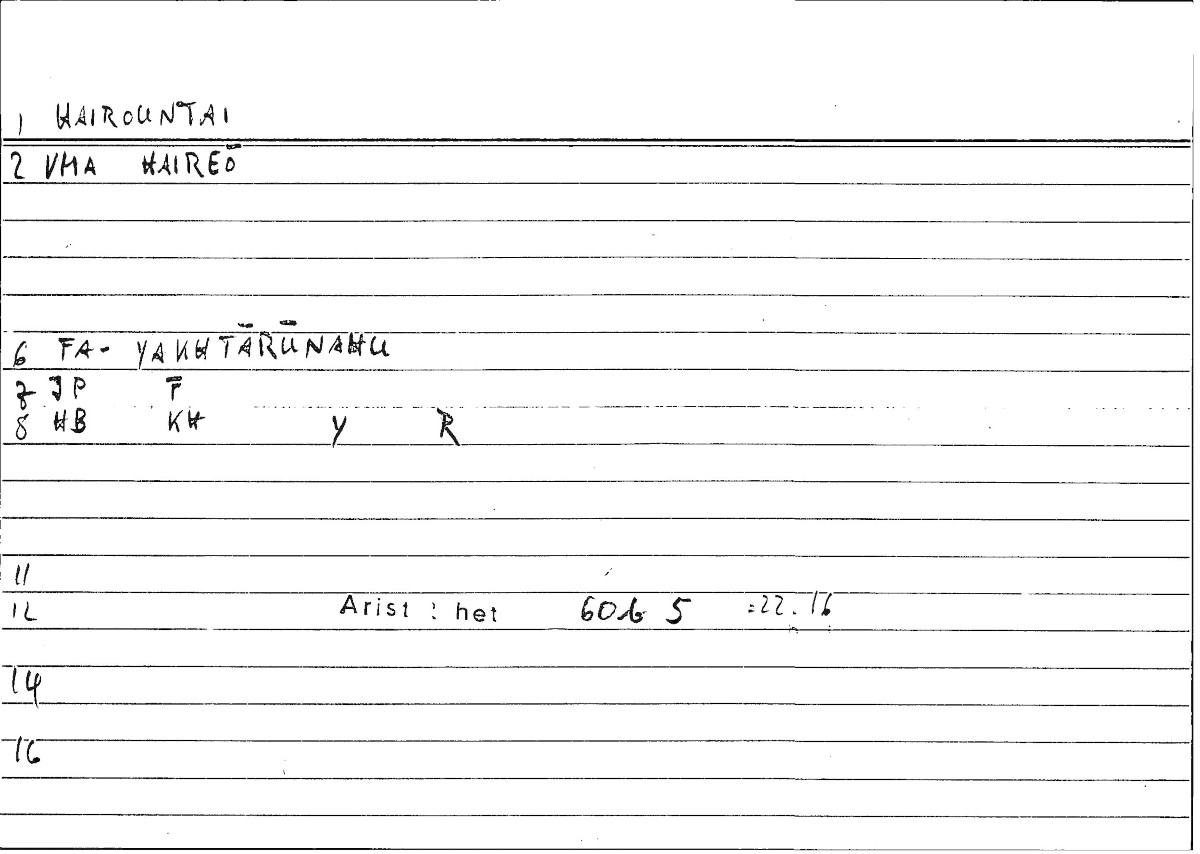 1 HAIROUNTAI
2 VMA HAIREŌ
6 FA- YAKHTĀRŪNAHU
7 JP F̄
8 HB KH Y R
11
12 Arist : het 60b 5 =22.16
14
16